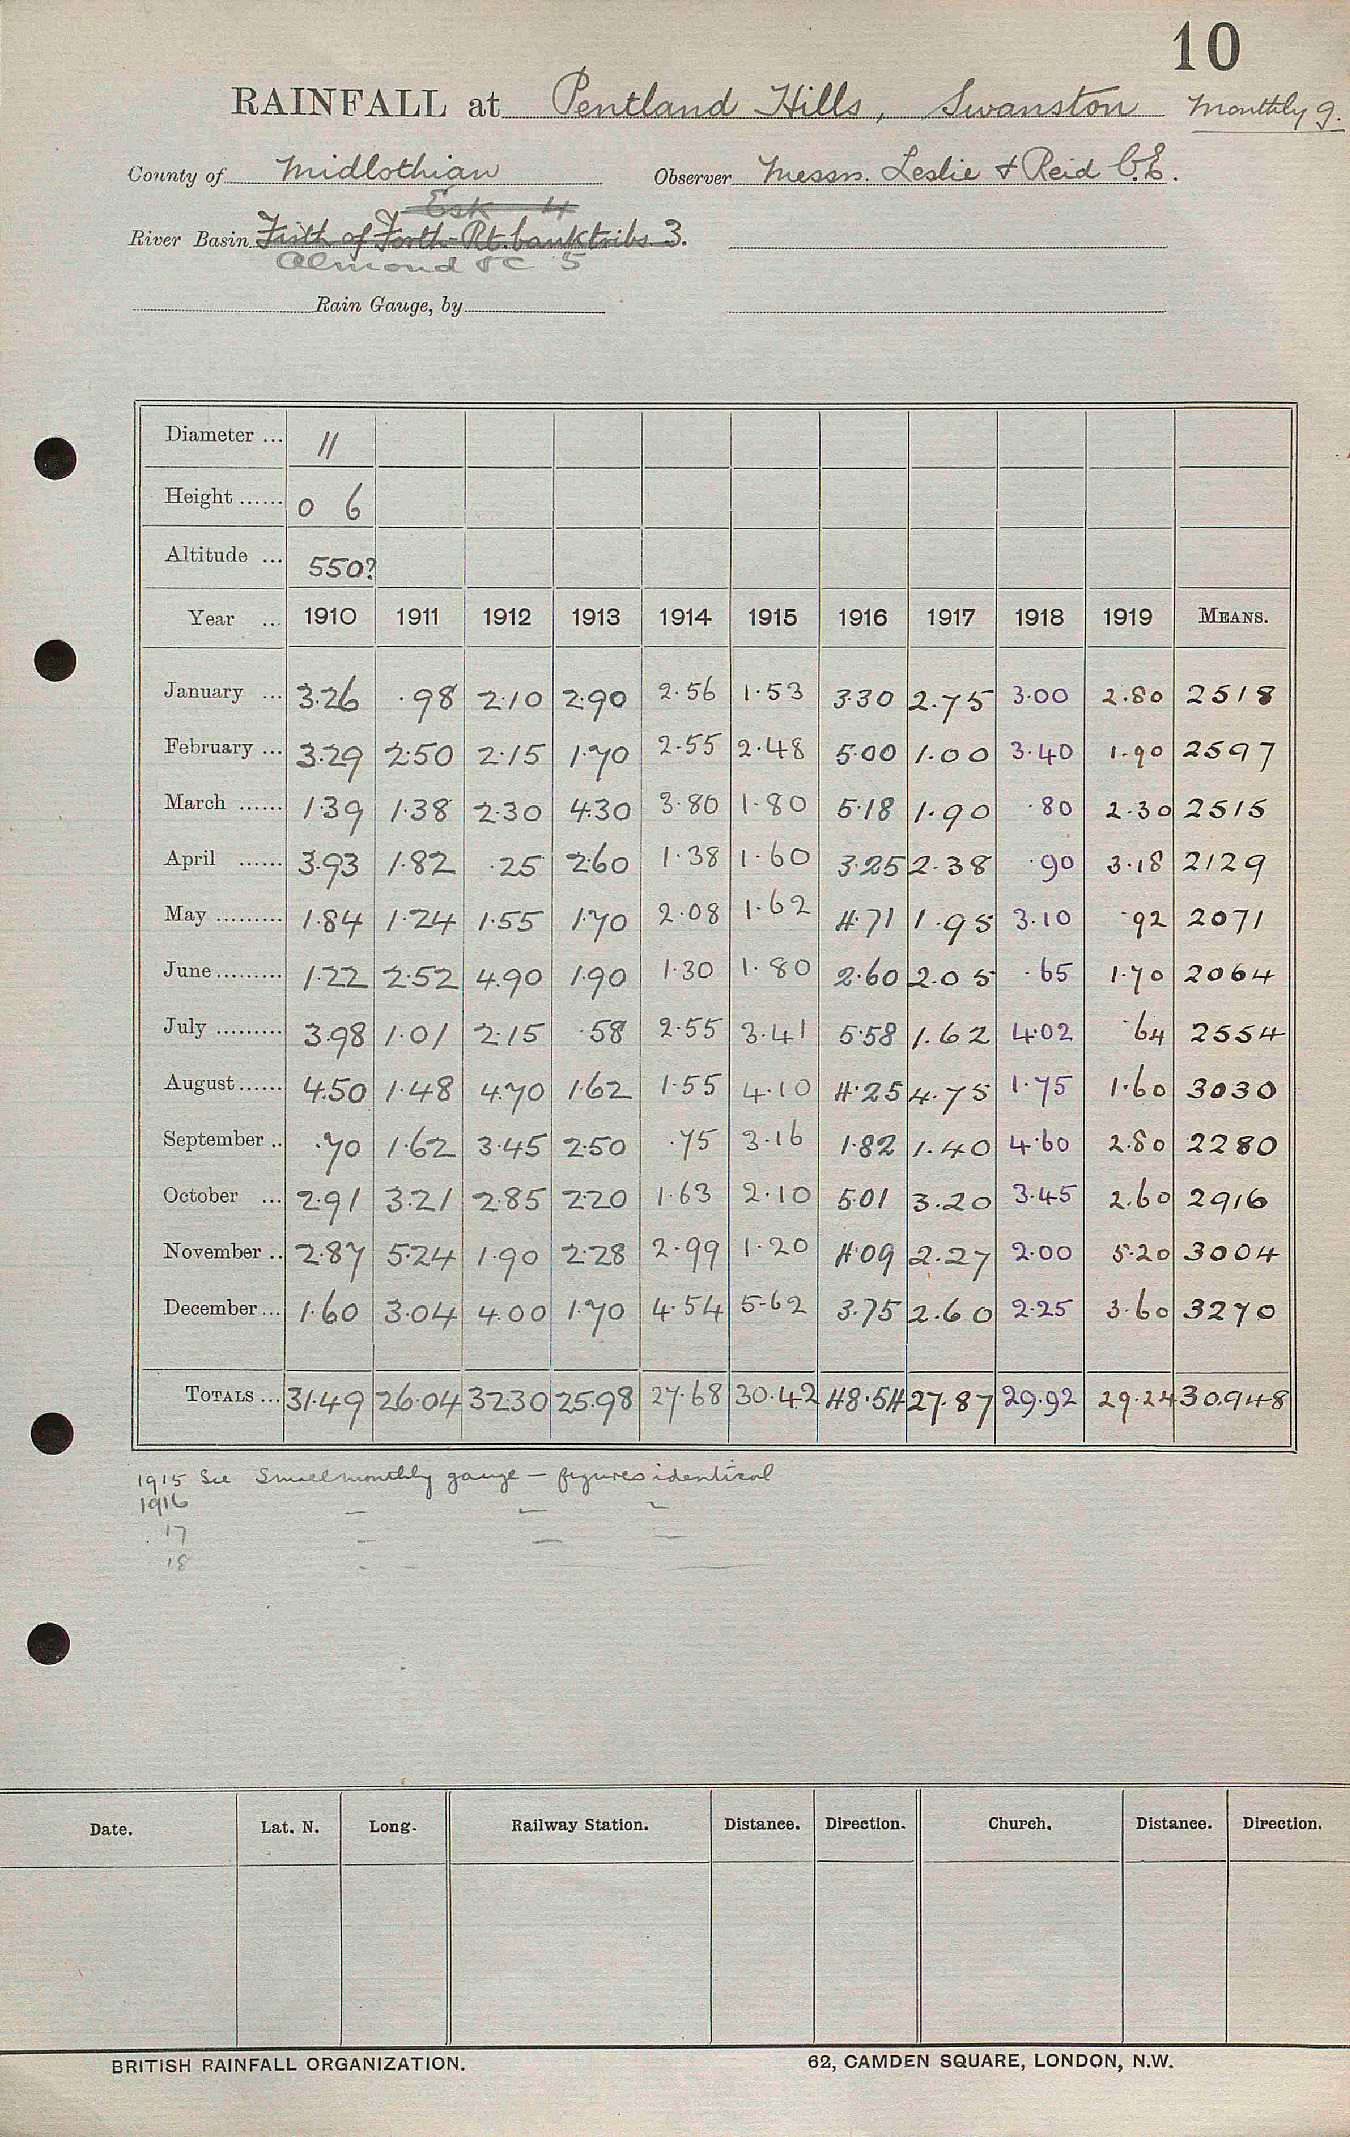 10
RAINFALL at Pentland Hills, Swanston Monthly g.
County of Midlothian Observer Messrs. Leslie & Reid C.E.
Esk 4
River Basin Firth of Forth Rt. bank tribs 3.
Almond &c 5
Rain Gauge, by
Diameter ... 11
Height ...... 0 6
Altitude ... 550?
Year ... 1910 1911 1912 1913 1914 1915 1916 1917 1918 1919 MEANS.
January ... 3.26 .98 2.10 2.90 2.56 1.53 3.30 2.75 3.00 2.80 2518
February ... 3.29 2.50 2.15 1.70 2.55 2.48 5.00 1.00 3.40 1.90 2597
March ...... 1.39 1.38 2.30 4.30 3.80 1.80 5.18 1.90 .80 2.30 2515
April ...... 3.93 1.82 .25 2.60 1.38 1.60 3.25 2.38 .90 3.18 2129
May ......... 1.84 1.24 1.55 1.70 2.08 1.62 4.71 1.95 3.10 .92 2071
June ......... 1.22 2.52 4.90 1.90 1.30 1.80 2.60 2.05 .65 1.70 2064
July ......... 3.98 1.01 2.15 .58 2.55 3.41 5.58 1.62 4.02 .64 2554
August ...... 4.50 1.48 4.70 1.62 1.55 4.10 4.25 4.75 1.75 1.60 3030
September .. .70 1.62 3.45 2.50 .75 3.16 1.82 1.40 4.60 2.80 2280
October ... 2.91 3.21 2.85 2.20 1.63 2.10 5.01 3.20 3.45 2.60 2916
November .. 2.87 5.24 1.90 2.28 2.99 1.20 4.09 2.27 2.00 5.20 3004
December ... 1.60 3.04 4.00 1.70 4.54 5.62 3.75 2.60 2.25 3.60 3270
TOTALS ... 31.49 26.04 32.30 25.98 27.68 30.42 48.54 27.87 29.92 29.24 30.948
1915 See Small monthly gauge — figures identical
1916 — — —
17 — — —
18 — —
Date. Lat. N. Long. Railway Station. Distance. Direction. Church. Distance. Direction.
BRITISH RAINFALL ORGANIZATION. 62, CAMDEN SQUARE, LONDON, N.W.